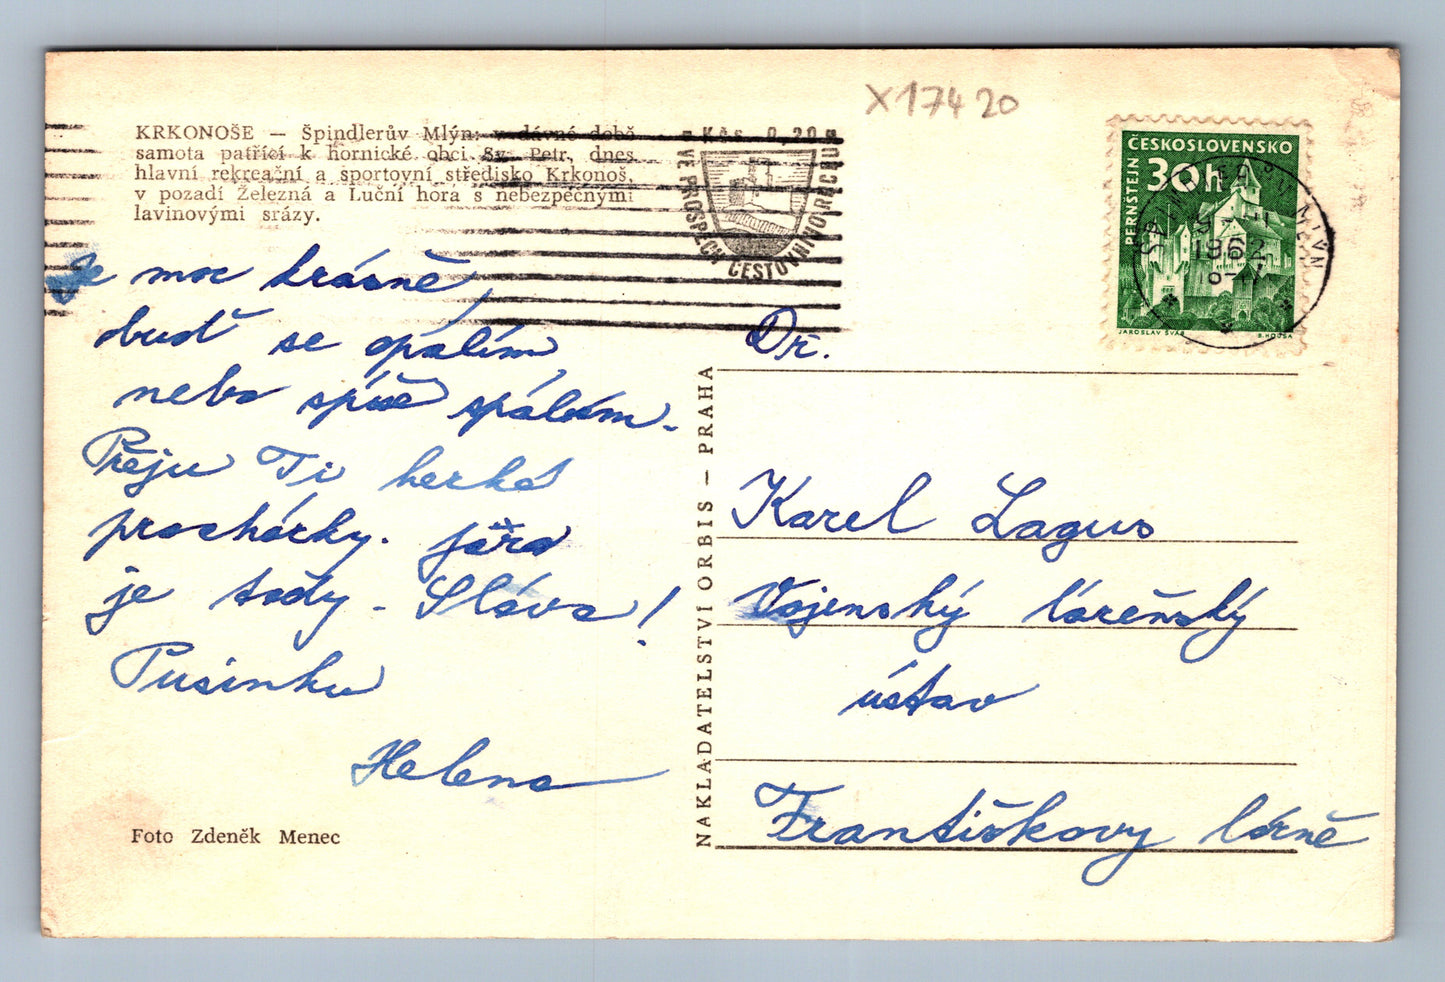 X 174 20
KRKONOŠE — Špindlerův Mlýn: v dávné době
samota patřící k hornické obci Sv. Petr, dnes
hlavní rekreační a sportovní středisko Krkonoš,
v pozadí Železná a Luční hora s nebezpečnými
lavinovými srázy.
Kčs 0,20
VE PROSPĚCH CESTOVNÍHO RUCHU
ČESKOSLOVENSKO
30h
PERNŠTEJN
JAROSLAV ŠVÁB
B. HOUSA
MLÝN
1962
Je moc krásně,
buď se opálím
nebo spíše spálím.
Přeju Ti hezké
procházky. Jára
je tady - Sláva!
Pusinku
Helena
Foto Zdeněk Menec
NAKLADATELSTVÍ ORBIS — PRAHA
Dr.
Karel Lagus
Vojenský lázeňský
ústav
Františkovy lázně